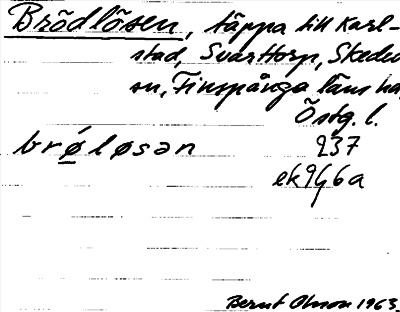 Brödlösen, täppa till Karl-
stad, Svarttorp, Skedev
sn, Finspånga läns ha
Östg. l.
brǿ̲løsən 237
ek9g6a
Bernt Olsson 1963.